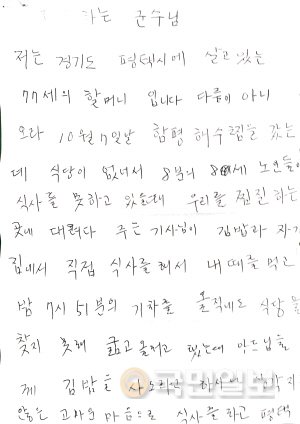 하는 군수님
저는 경기도 평택시에 살고 있는
77세의 할머니 입니다 다름이 아니
오라 10월 7일날 함평 해수찜을 갔는
데 식당이 없너서 8분의 80세 노인들이
식사를 못하고 있을때 우리를 찜질하는
곳에 대려다 주는 기사님이 김밥과 자기
집에서 직접 식사를 해서 내때를 먹고
밤 7시 51분의 기차를 올적에도 식당을
찾지 못해 굶고 올려고 했는데
께 김밥을 사드리고
않은 고마운 마음으로 식사를 하고 평택
국민일보